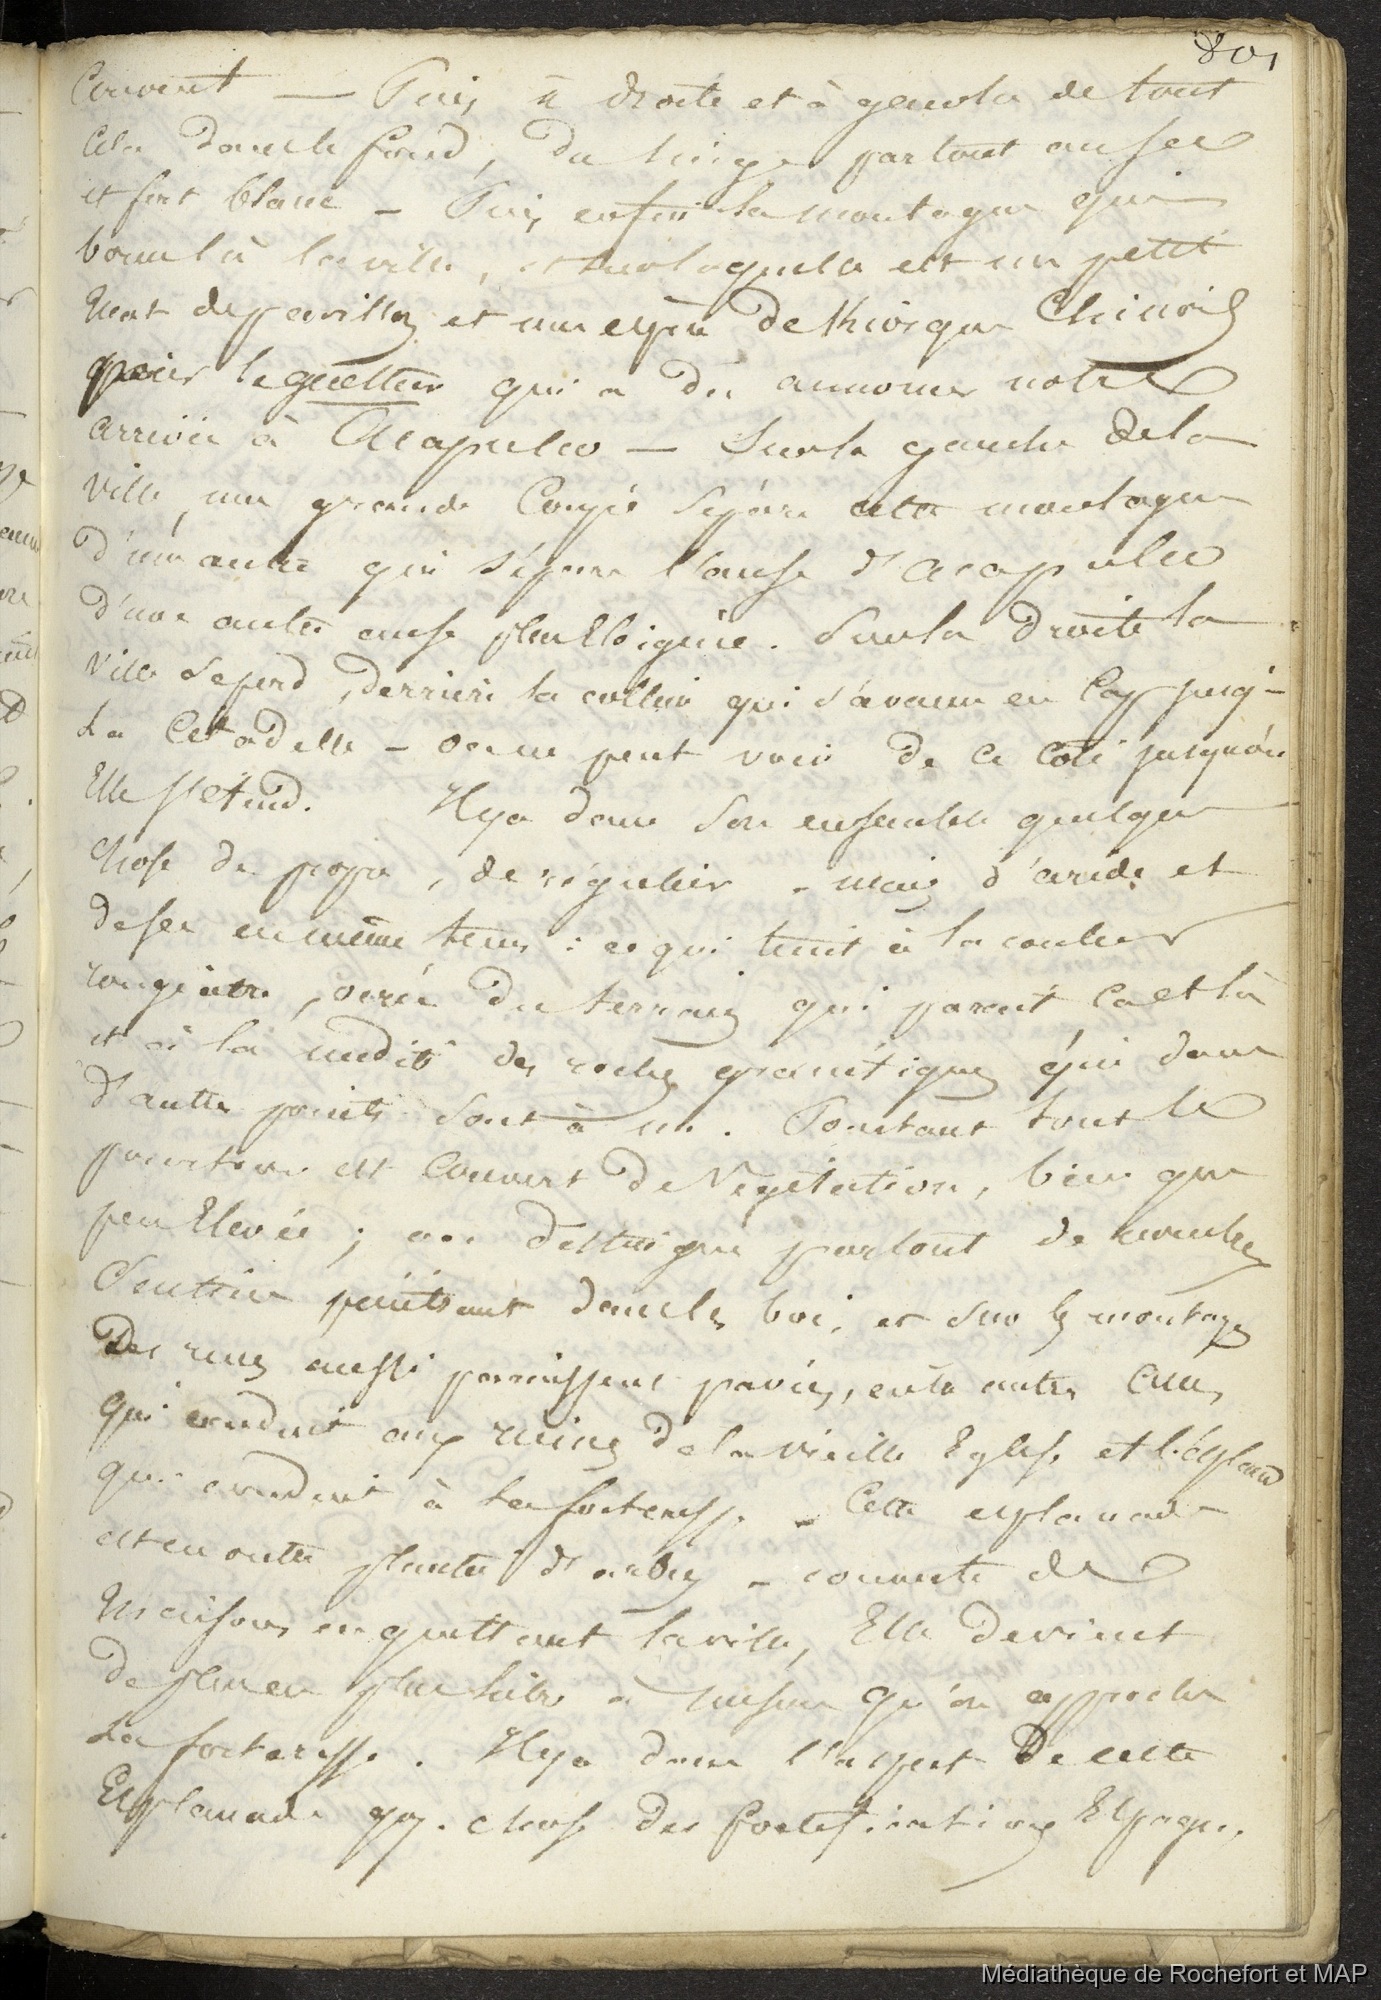 801
Couvent — Puis à droite et à gauche de tout
cela dans le fond, du linge partout au sec
et fort blanc – Puis enfin la montagne qui
borne là la ville, et sur laquelle est un petit
mat de pavillon et une espèce de Kiosque Chinois
pour le guetteur qui a du annoncer notre
arrivée à Acapulco — Sur la gauche de la
ville, une grande Coupée sépare cette montagne
d'une autre qui sépare l'anse d'acapulco
d'une autre anse plus Eloignée. Sur la droite la
ville se perd, derrière la colline qui s'avance en Cap jusq'
la Citadelle – on ne peut voir de ce coté jusqu'où
Elle s'étend. Il y a dans son ensemble quelque
chose de propre, de régulier – mais d'aride et
de sec en même tems : ce qui tient à la couleur
rougeatre, ocrée du terrain qui parait ca et là
et à la nudité des roches granitiques qui dans
d'autres points sont à nu. Pourtant tout le
pourtour est couvert de Végétation, bien que
peu Elevée ; on distingue partout de nombreux
Sentiers penétrant dans les bois et sur les montagnes
Des rues aussi paraissent pavées, entr'autres Celles
qui conduit aux ruines de la vieille Eglise et l'esplanade
qui conduit à la forteresse – Cette esplanade
est en outre plantée d'arbres – couverte de
Maisons en quittant la ville, Elle devient
de plus en plus libre à mesure qu'on approche
la forteresse. Il y a dans l'aspect de cette
Esplanade qq. chose des fortifications Espagn.
Médiathèque de Rochefort et MAP